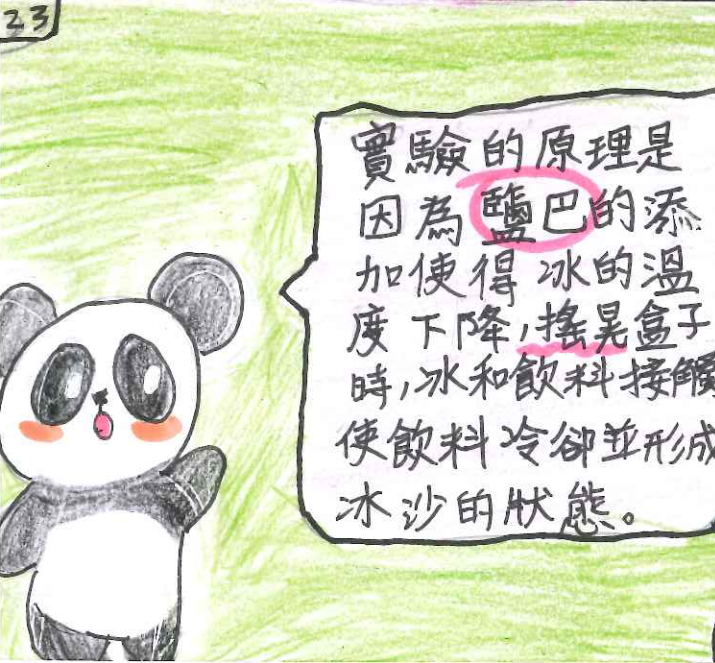 23
實驗的原理是
因為鹽巴的添
加使得冰的溫
度下降,搖晃盒子
時,冰和飲料接觸
使飲料冷卻並形成
冰沙的狀態。